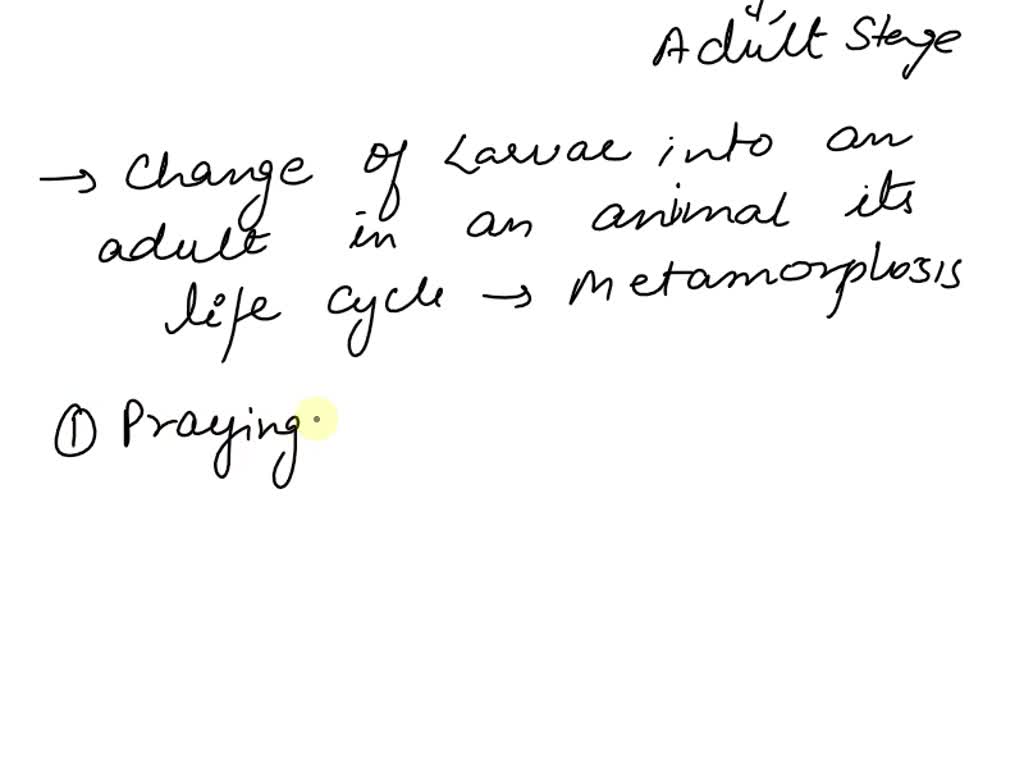 Adult Stage
→ Change of Larvae into an
adult in an animal its
life cycle → Metamorphosis
① Praying